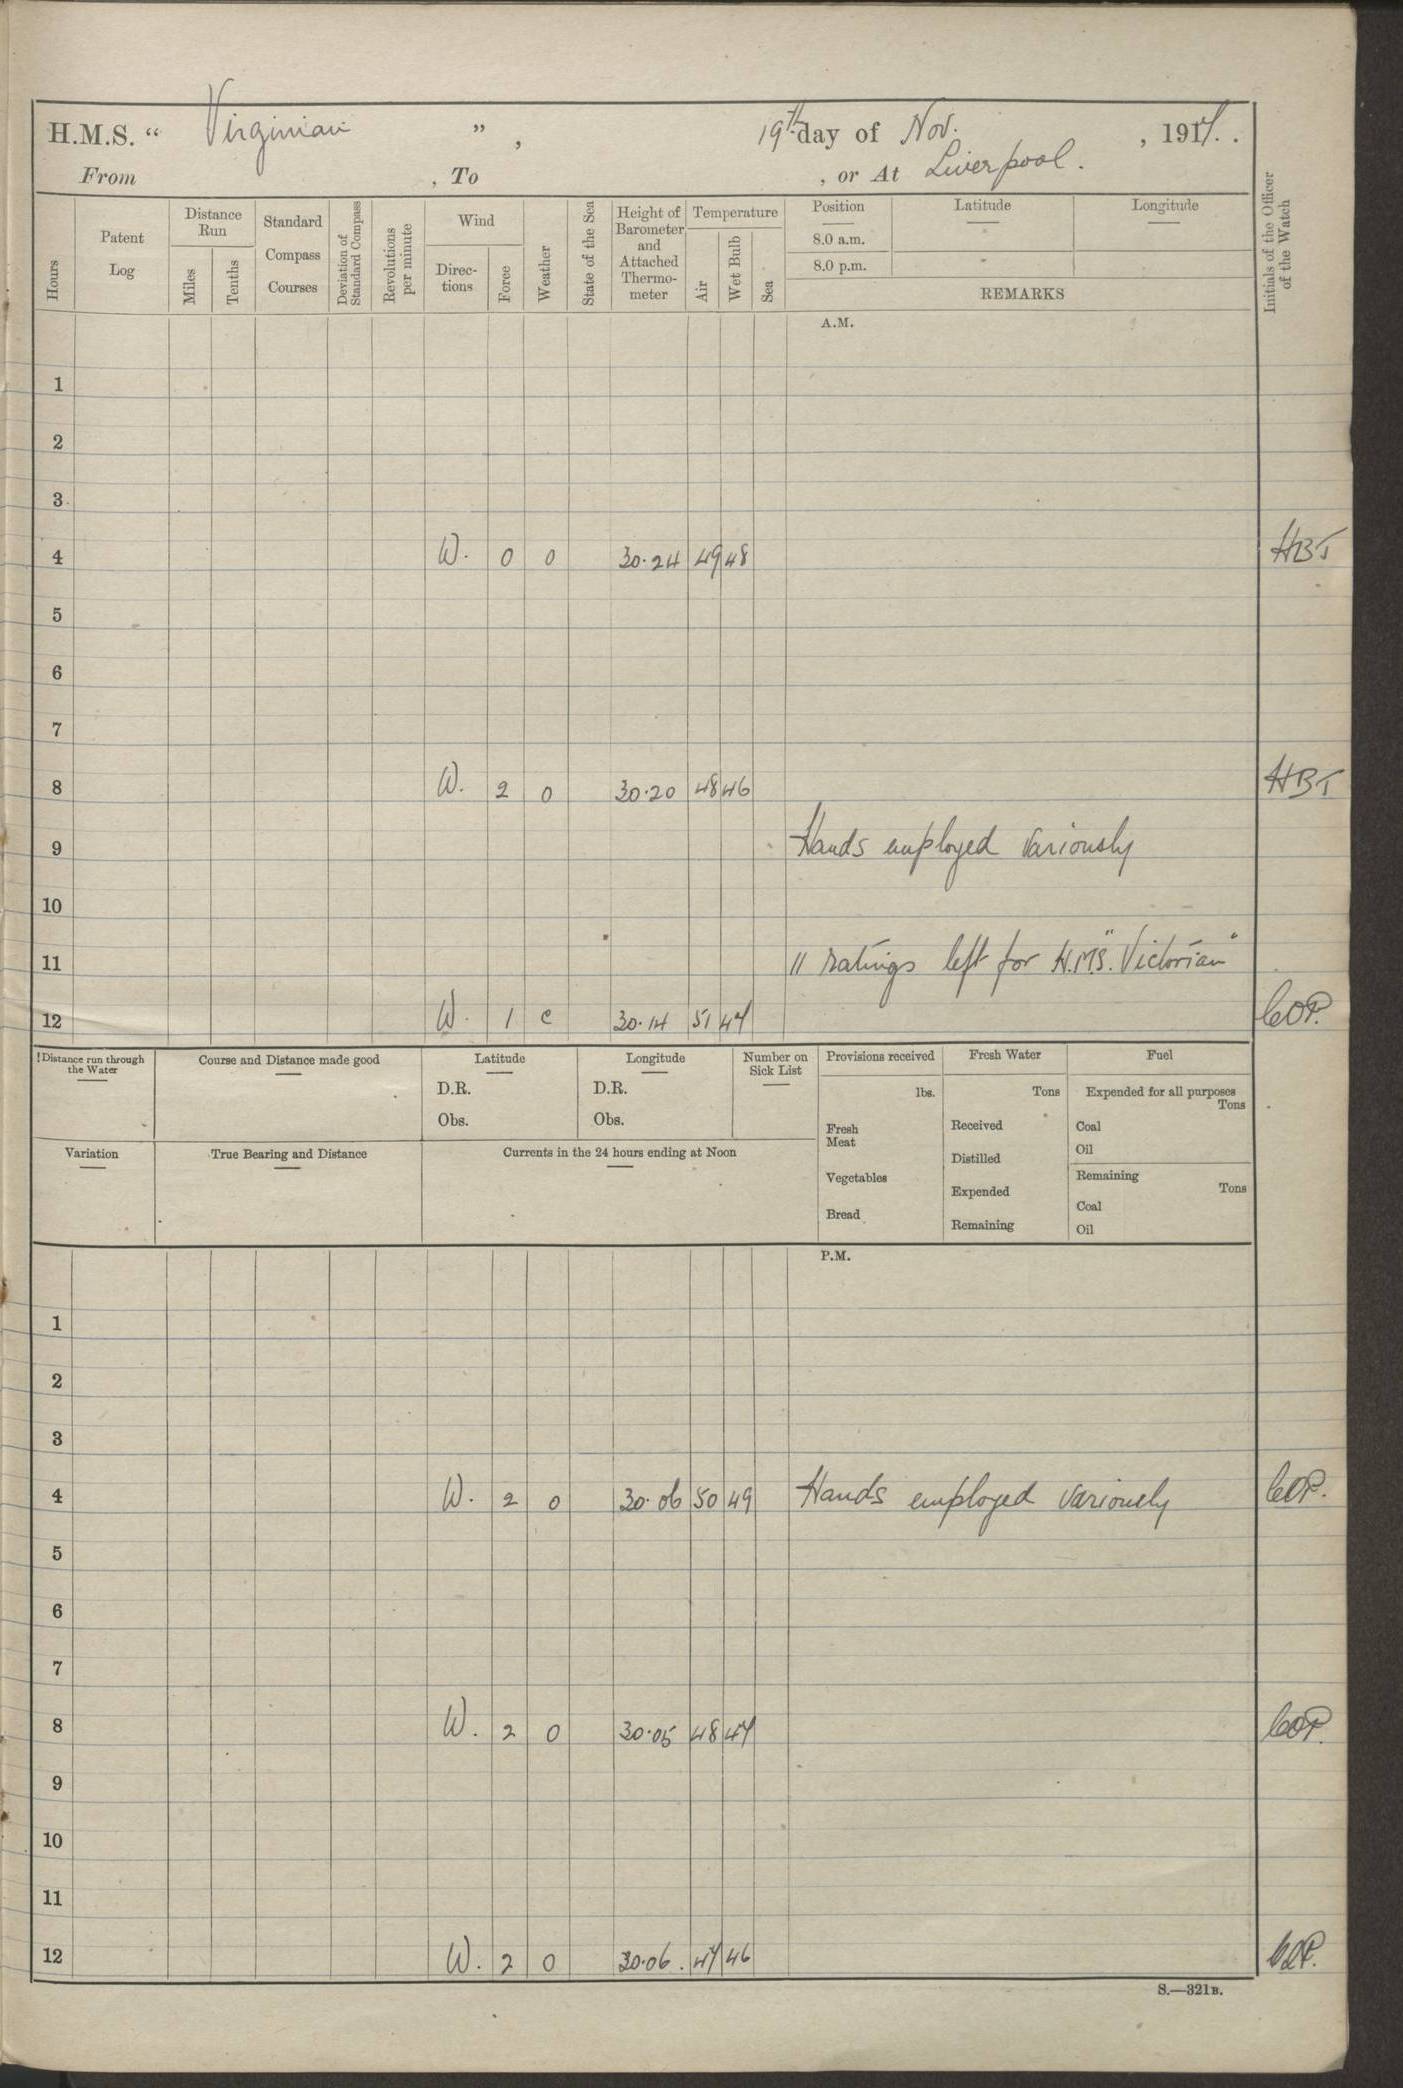 H.M.S. “ Virginian ” , 19th day of Nov. , 1917. .
From , To , or At Liverpool.
Hours
Patent Log
Distance Run
Miles
Tenths
Standard Compass Courses
Deviation of Standard Compass
Revolutions per minute
Wind
Direc- tions
Force
Weather
State of the Sea
Height of Barometer and Attached Thermo- meter
Temperature
Air
Wet Bulb
Sea
Position
8.0 a.m.
8.0 p.m.
Latitude
Longitude
REMARKS
Initials of the Officer of the Watch
A.M.
1
2
3
4 W. 0 0 30.24 49 48 HBT
5
6
7
8 W. 2 0 30.20 48 46 HBT
9 Hands employed variously
10
11 11 ratings left for H.M.S. "Victorian"
12 W. 1 c 30.14 51 47 COP.
Distance run through the Water
Course and Distance made good
Latitude
D.R.
Obs.
Longitude
D.R.
Obs.
Number on Sick List
Provisions received
lbs.
Fresh Meat
Vegetables
Bread
Fresh Water
Tons
Received
Distilled
Expended
Remaining
Fuel
Expended for all purposes
Tons
Coal
Oil
Remaining
Tons
Coal
Oil
Variation
True Bearing and Distance
Currents in the 24 hours ending at Noon
P.M.
1
2
3
4 W. 2 0 30.06 50 49 Hands employed variously COP.
5
6
7
8 W. 2 0 30.05 48 47 COP.
9
10
11
12 W. 2 0 30.06 47 46 COP.
S.—321B.